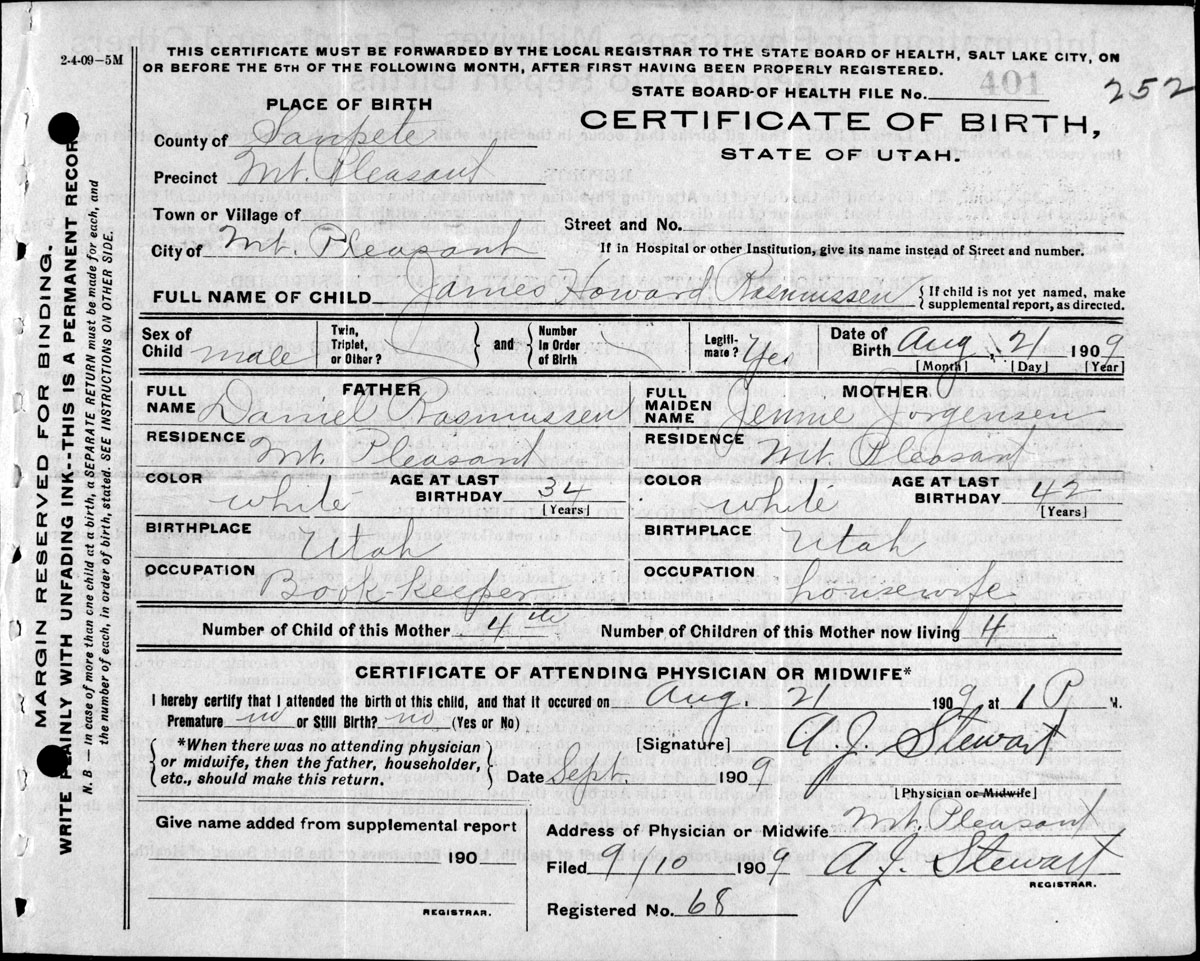 2-4-09-5M
THIS CERTIFICATE MUST BE FORWARDED BY THE LOCAL REGISTRAR TO THE STATE BOARD OF HEALTH, SALT LAKE CITY, ON
OR BEFORE THE 5TH OF THE FOLLOWING MONTH, AFTER FIRST HAVING BEEN PROPERLY REGISTERED.
STATE BOARD OF HEALTH FILE No. 252
401
PLACE OF BIRTH
CERTIFICATE OF BIRTH,
STATE OF UTAH.
County of Sanpete
Precinct Mt. Pleasant
Town or Village of
Street and No.
City of Mt. Pleasant
If in Hospital or other Institution, give its name instead of Street and number.
FULL NAME OF CHILD James Howard Rasmussen { If child is not yet named, make
supplemental report, as directed.
Sex of Child male
Twin, Triplet, or Other? } and { Number In Order of Birth
Legitimate? Yes
Date of Birth Aug. 21 1909
[Month] [Day] [Year]
FATHER
FULL NAME Daniel Rasmussen
RESIDENCE Mt. Pleasant
COLOR white AGE AT LAST BIRTHDAY 34
[Years]
BIRTHPLACE Utah
OCCUPATION Book-keeper
MOTHER
FULL MAIDEN NAME Jennie Jorgensen
RESIDENCE Mt. Pleasant
COLOR white AGE AT LAST BIRTHDAY 42
[Years]
BIRTHPLACE Utah
OCCUPATION housewife
Number of Child of this Mother 4th Number of Children of this Mother now living 4
CERTIFICATE OF ATTENDING PHYSICIAN OR MIDWIFE*
I hereby certify that I attended the birth of this child, and that it occured on Aug. 21 1909 at 1 P M.
Premature no or Still Birth? no (Yes or No)
{ *When there was no attending physician
or midwife, then the father, householder,
etc., should make this return. }
[Signature] A. J. Stewart
Date Sept. 1909
[Physician or Midwife]
Give name added from supplemental report
190
REGISTRAR.
Address of Physician or Midwife Mt. Pleasant
Filed 9/10 1909 A J. Stewart
REGISTRAR.
Registered No. 68
MARGIN RESERVED FOR BINDING.
WRITE PLAINLY WITH UNFADING INK--THIS IS A PERMANENT RECORD
N. B. — In case of more than one child at a birth, a SEPARATE RETURN must be made for each, and
the number of each, in order of birth, stated. SEE INSTRUCTIONS ON OTHER SIDE.